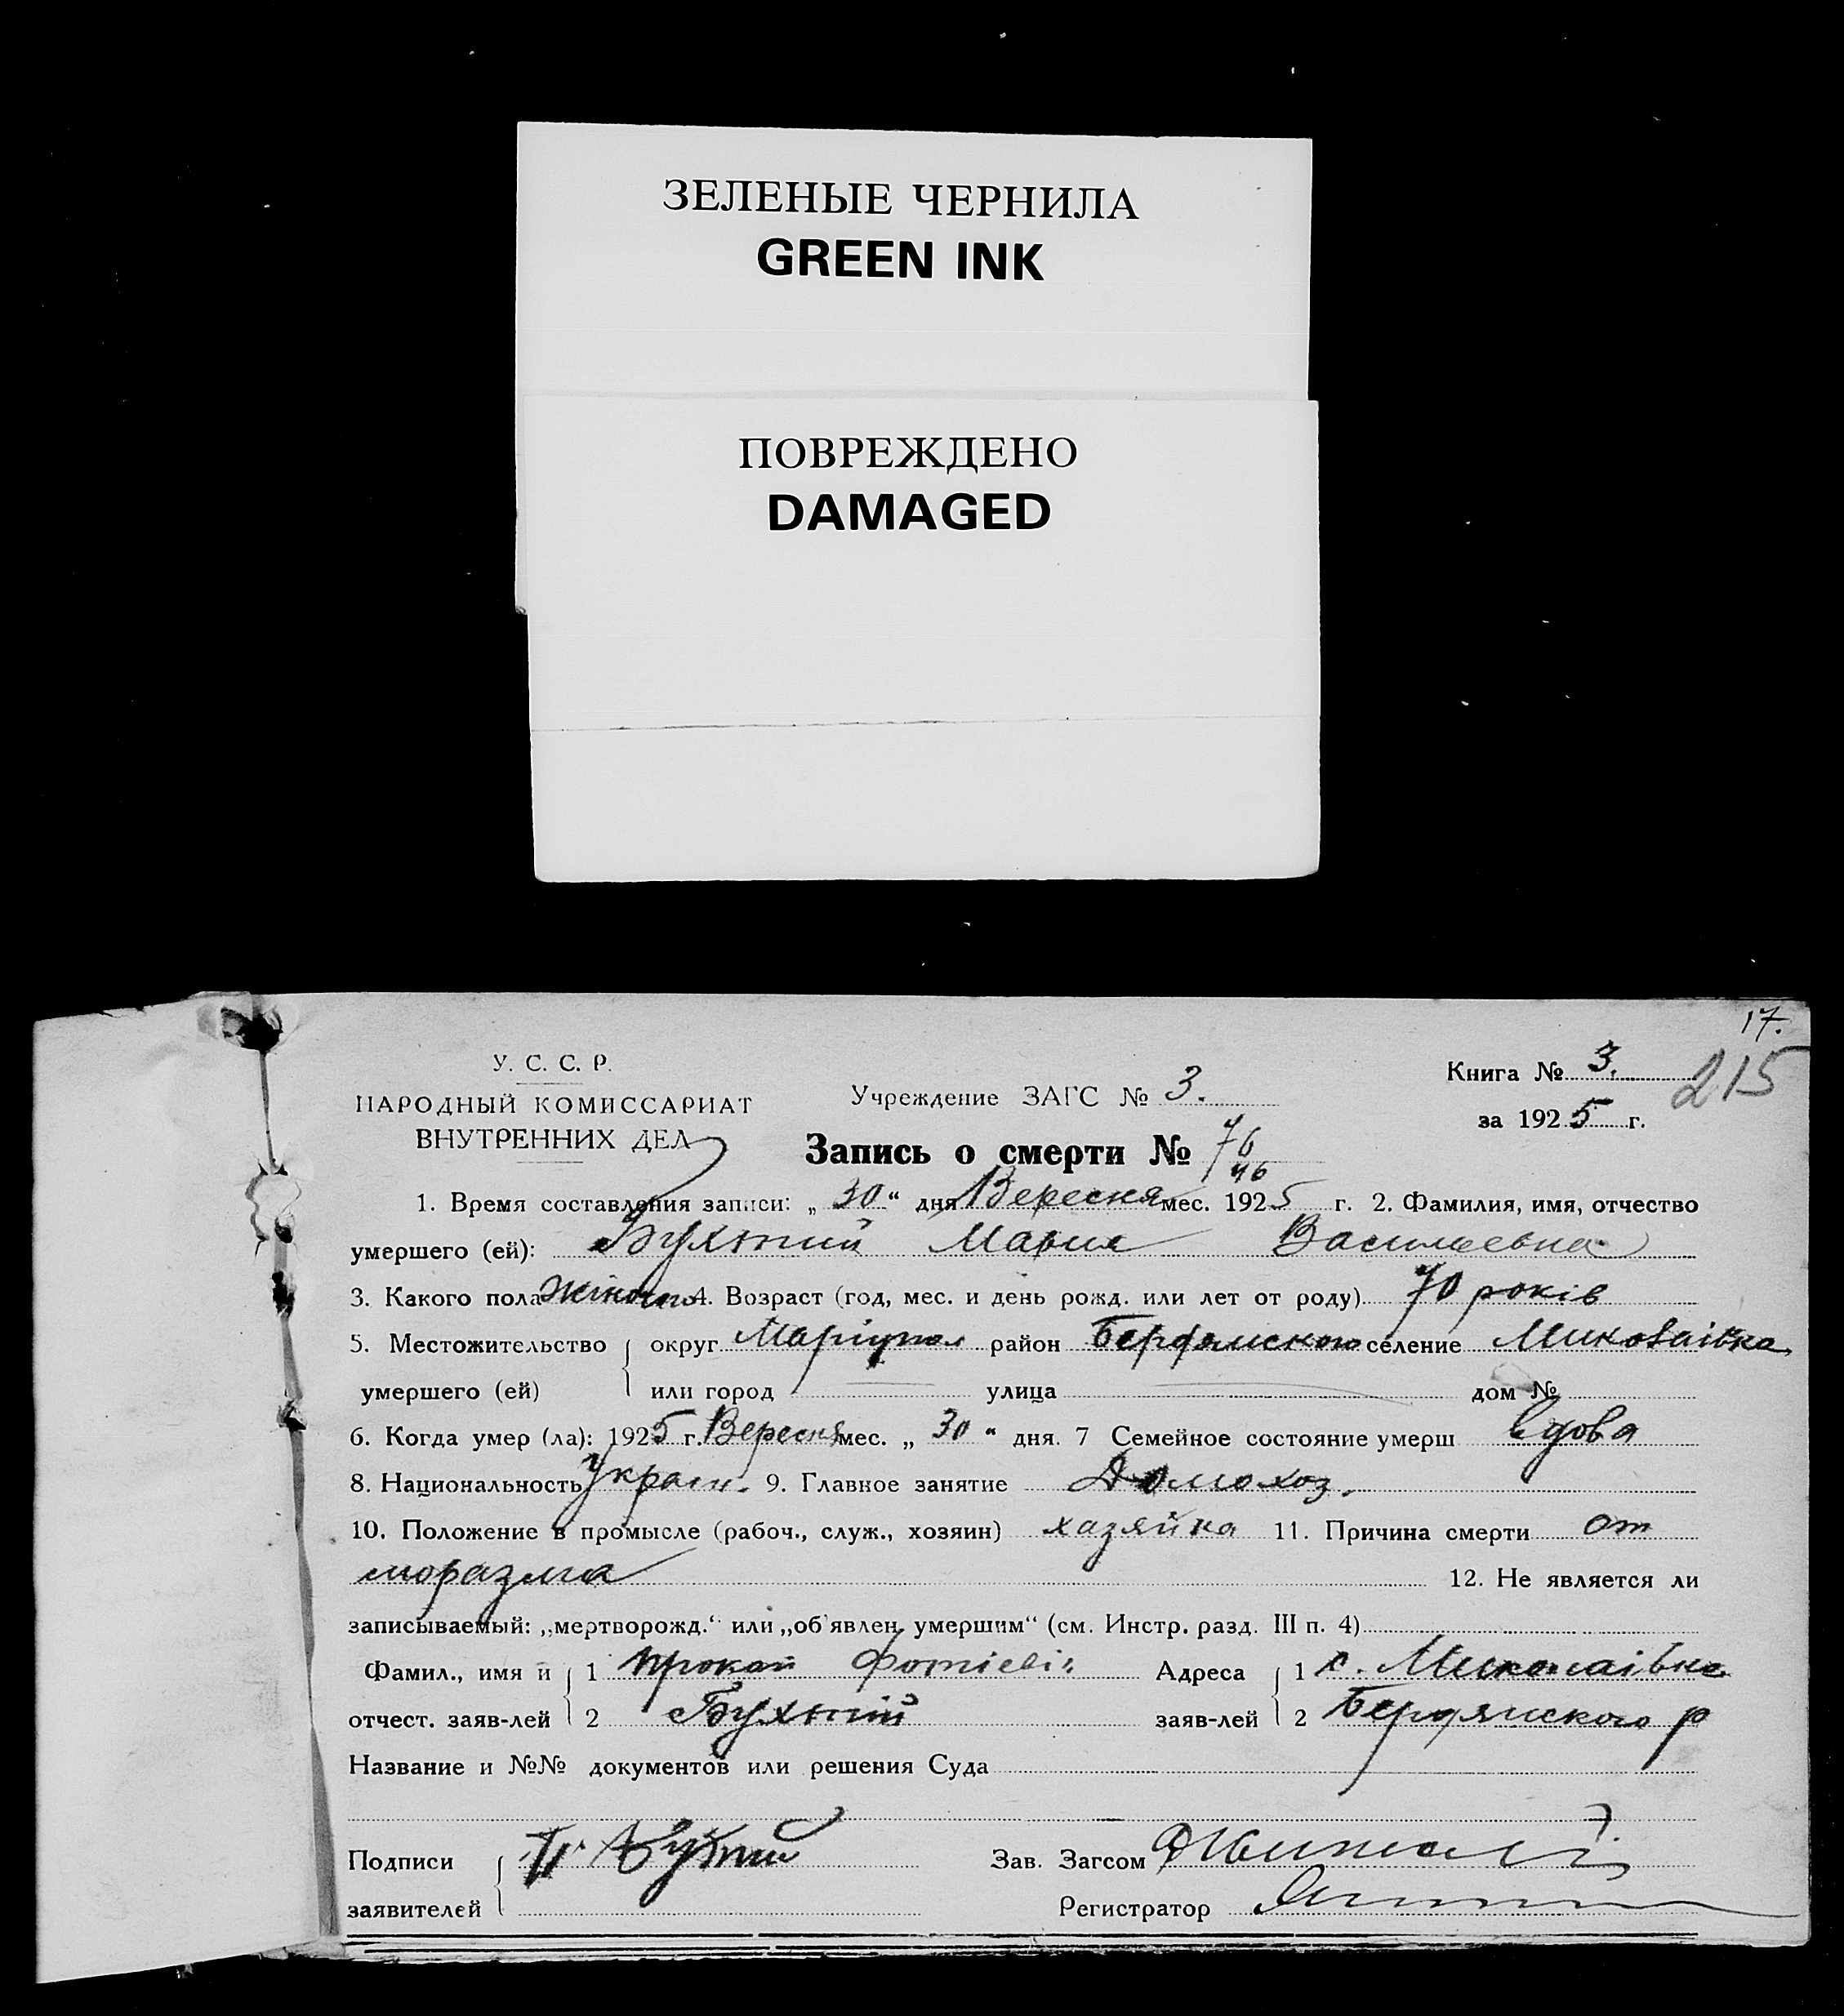 ЗЕЛЕНЫЕ ЧЕРНИЛА
GREEN INK
ПОВРЕЖДЕНО
DAMAGED
17.
215
У. С. С. Р.
НАРОДНЫЙ КОМИССАРИАТ
ВНУТРЕННИХ ДЕЛ
Учреждение ЗАГС № 3.
Книга № 3.
за 1925 г.
Запись о смерти № 76
46
1. Время составления записи: „30“ дня Вересня мес. 1925 г. 2. Фамилия, имя, отчество
умершего (ей): Бухтий Мария Васильевна
3. Какого пола 4. Возраст (год, мес. и день рожд. или лет от роду) 70 років
5. Местожительство округ Маріупол район Бердянського селение Миколаівка
умершего (ей) или город улица дом №
6. Когда умер (ла): 1925 г. Вересня мес. „30“ дня. 7 Семейное состояние умерш вдова
8. Национальность україн. 9. Главное занятие Домохоз.
10. Положение в промысле (рабоч., служ., хозяин) хазяйка 11. Причина смерти от
моразма 12. Не является ли
записываемый: „мертворожд.“ или „об'явлен. умершим“ (см. Инстр. разд. III п. 4)
Фамил., имя и 1 Прокоп Фотієвіч Адреса 1 с. Миколаівка
отчест. заяв-лей 2 Бухтий заяв-лей 2 Бердянського р
Название и №№ документов или решения Суда
Подписи П. Бухтий Зав. Загсом
заявителей Регистратор